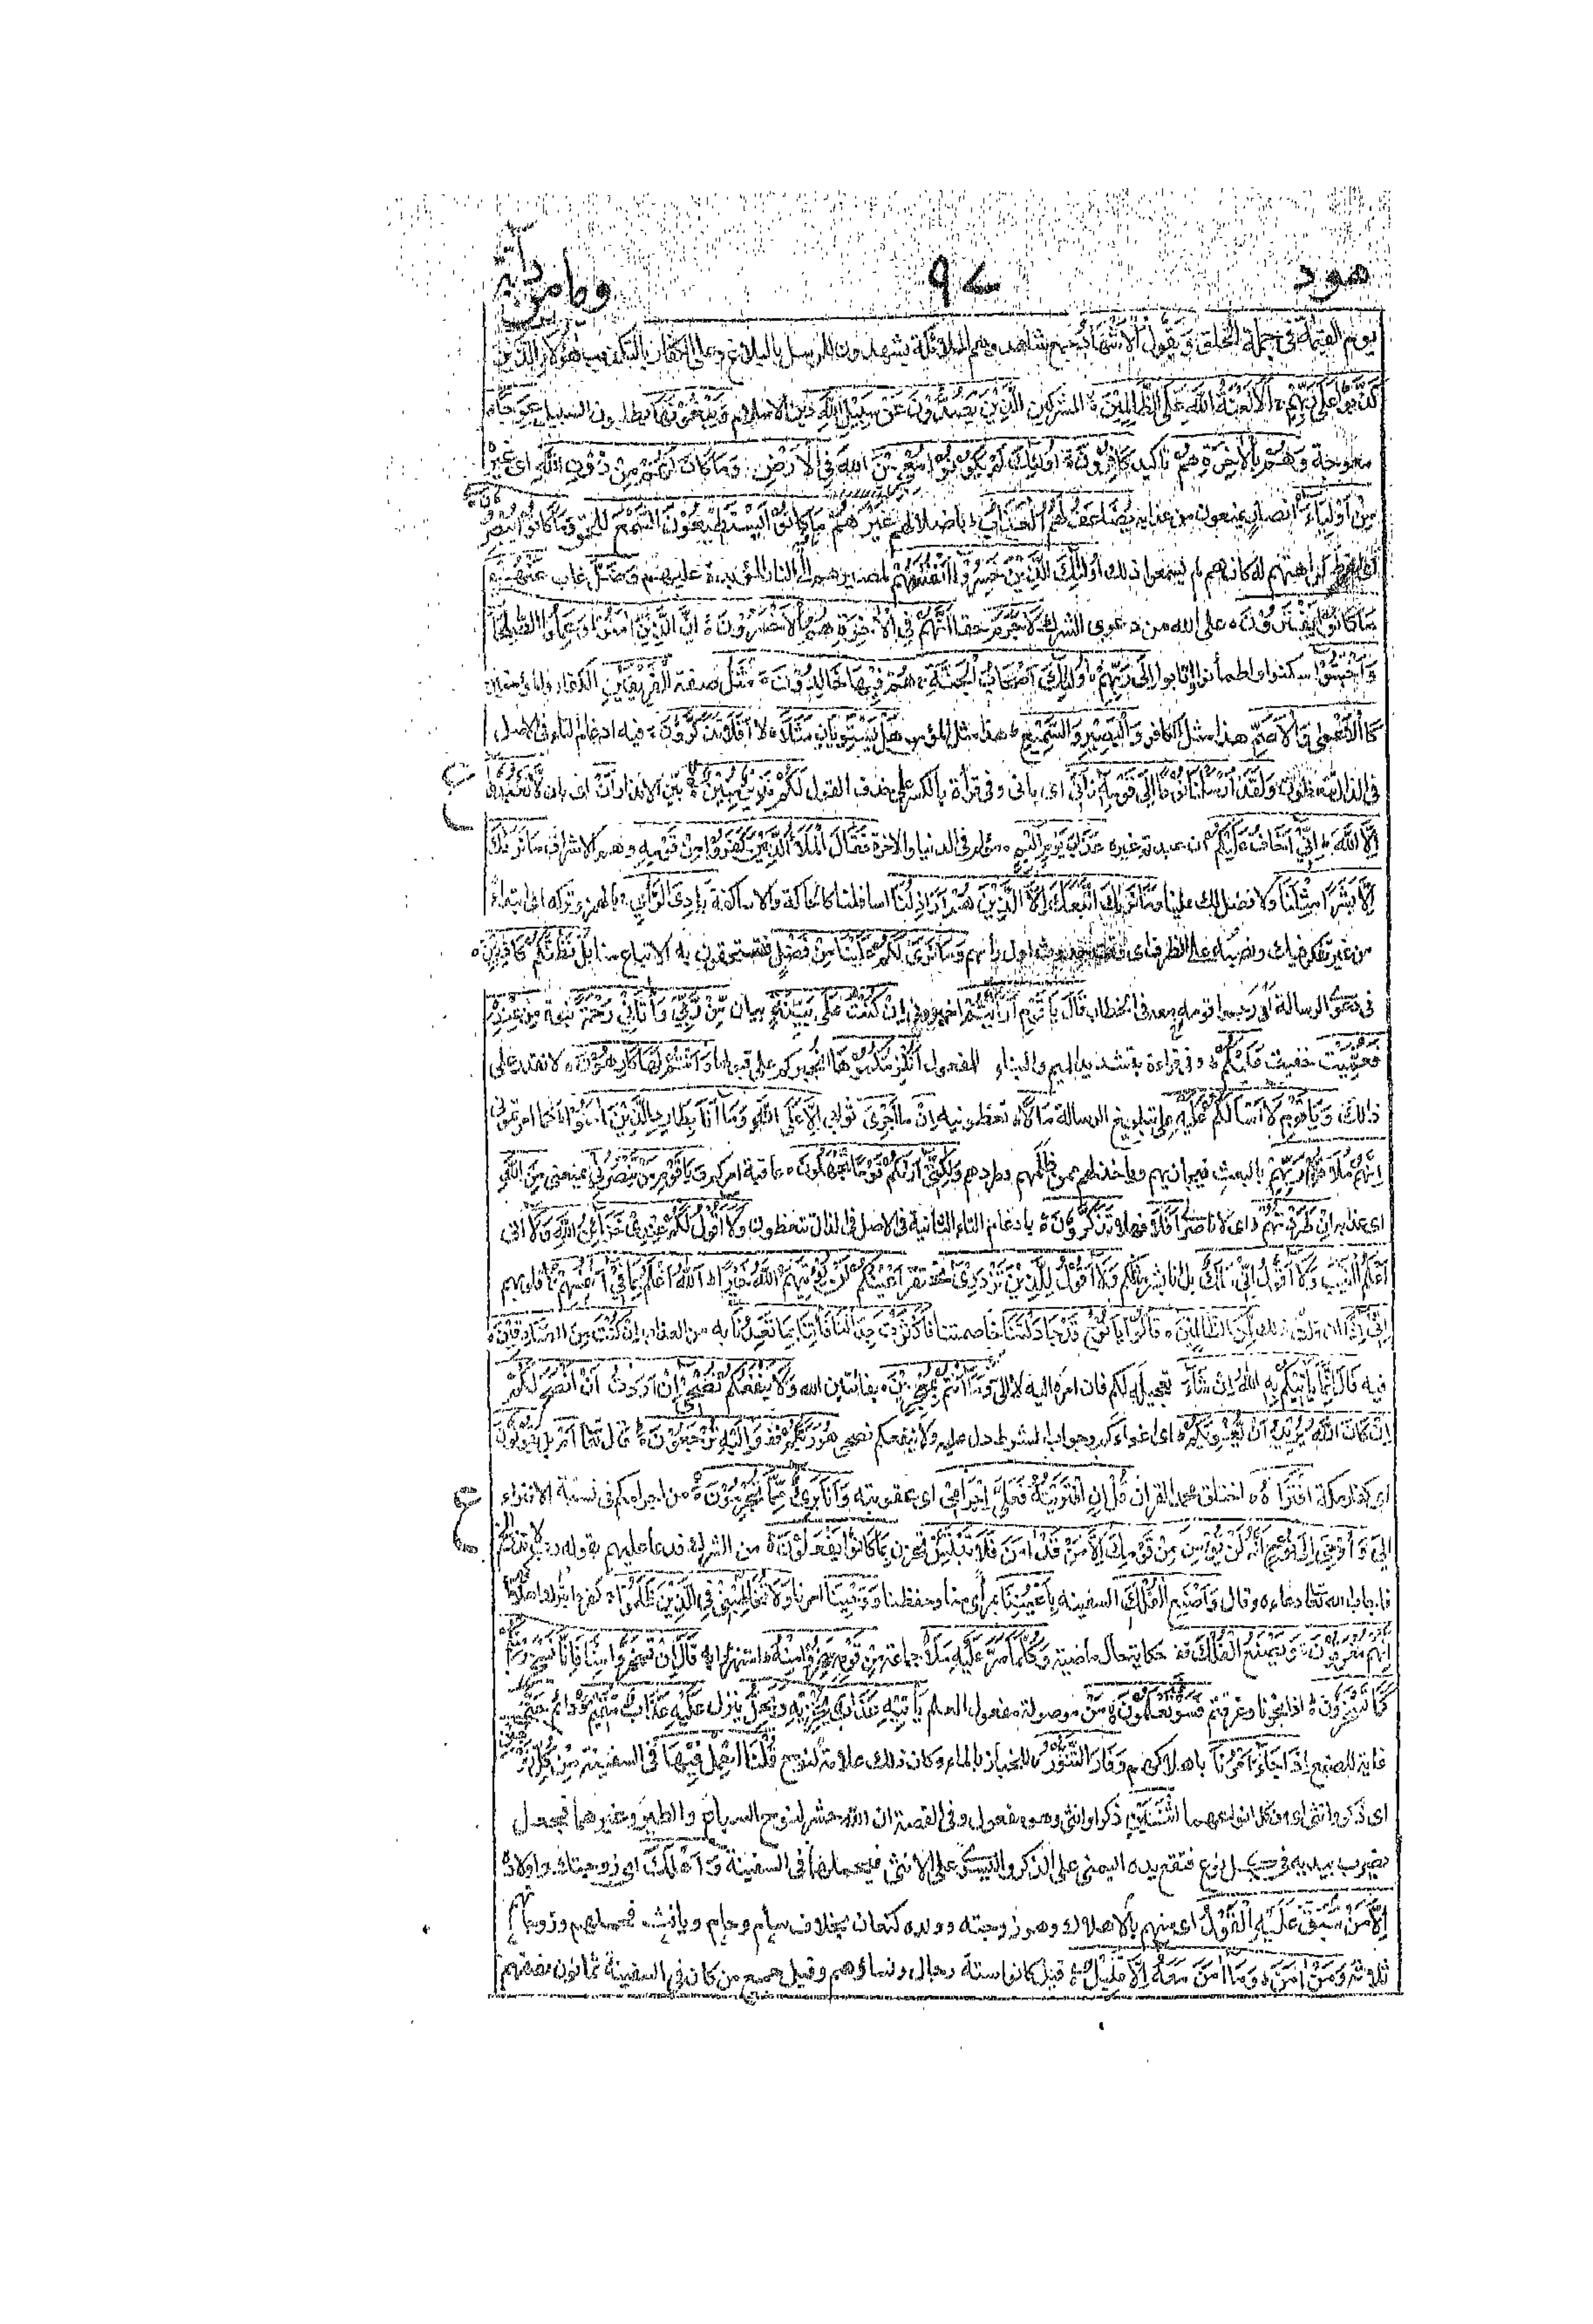 هود ٩٧ ومامن دآبة
يوم القيمة في جملة الخلق وَيَقُولُ الْأَشْهَادُ جمع شاهد وهم الملائكة يشهدون للرسل بالبلاغ وعلى الكفار بالتكذيب هٰؤُلَاءِ الَّذِينَ
كَذَبُوا عَلَىٰ رَبِّهِمْ أَلَا لَعْنَةُ اللَّهِ عَلَى الظَّالِمِينَ المشركين الَّذِينَ يَصُدُّونَ عَنْ سَبِيلِ اللَّهِ دين الاسلام وَيَبْغُونَهَا يطلبون السبيل عِوَجًا
معوجة وَهُمْ بِالْآخِرَةِ هُمْ تاكيد كَافِرُونَ أُولٰئِكَ لَمْ يَكُونُوا مُعْجِزِينَ اللهَ فِي الْأَرْضِ وَمَا كَانَ لَهُمْ مِنْ دُونِ اللَّهِ اى غيره
مِنْ أَوْلِيَاءَ انصار يمنعون من عذابه يُضَاعَفُ لَهُمُ الْعَذَابُ باضلالهم غيرهم مَا كَانُوا يَسْتَطِيعُونَ السَّمْعَ للحق وَمَا كَانُوا يُبْصِرُونَ
اى لفرط كراهتهم له كانهم لم يستطيعوا ذلك أُولٰئِكَ الَّذِينَ خَسِرُوا أَنْفُسَهُمْ لمصيرهم الى النار المؤبدة عليهم وَضَلَّ غاب عَنْهُمْ
مَا كَانُوا يَفْتَرُونَ على الله من دعوى الشرك لَا جَرَمَ حقا أَنَّهُمْ فِي الْآخِرَةِ هُمُ الْأَخْسَرُونَ إِنَّ الَّذِينَ آمَنُوا وَعَمِلُوا الصَّالِحَاتِ
وَأَخْبَتُوا سكنوا واطمأنوا او انابوا إِلَىٰ رَبِّهِمْ أُولٰئِكَ أَصْحَابُ الْجَنَّةِ هُمْ فِيهَا خَالِدُونَ مَثَلُ صفة الْفَرِيقَيْنِ الكفار والمؤمنين
كَالْأَعْمَىٰ وَالْأَصَمِّ هذا مثل الكافر وَالْبَصِيرِ وَالسَّمِيعِ هذا مثل المؤمن هَلْ يَسْتَوِيَانِ مَثَلًا لا أَفَلَا تَذَكَّرُونَ فيه ادغام التاء في الاصل
في الذال تتعظون وَلَقَدْ أَرْسَلْنَا نُوحًا إِلَىٰ قَوْمِهِ إِنِّي اى بانى وفى قرأة بالكسر على حذف القول لَكُمْ نَذِيرٌ مُبِينٌ بيّن الانذار أَنْ اى بان لَا تَعْبُدُوا
إِلَّا اللَّهَ إِنِّي أَخَافُ عَلَيْكُمْ ان عبدتم غيره عَذَابَ يَوْمٍ أَلِيمٍ مؤلم فى الدنيا والاخرة فَقَالَ الْمَلَأُ الَّذِينَ كَفَرُوا مِنْ قَوْمِهِ وهم الاشراف مَا نَرَاكَ
إِلَّا بَشَرًا مِثْلَنَا ولا فضل لك علينا وَمَا نَرَاكَ اتَّبَعَكَ إِلَّا الَّذِينَ هُمْ أَرَاذِلُنَا اسافلنا كالحاكة والاساكفة بَادِيَ الرَّأْيِ بالهمز وتركه اى ابتداء
من غير تفكر فيك ونصبه على الظرف اى وقت حدوث اول رأيهم وَمَا نَرَىٰ لَكُمْ عَلَيْنَا مِنْ فَضْلٍ فتستحقون به الاتباع منا بَلْ نَظُنُّكُمْ كَاذِبِينَ
فى دعوى الرسالة ادرجوا قومه معه فى الخطاب قَالَ يَا قَوْمِ أَرَأَيْتُمْ اخبرونى إِنْ كُنْتُ عَلَىٰ بَيِّنَةٍ بيان مِنْ رَبِّي وَآتَانِي رَحْمَةً نبوة مِنْ عِنْدِهِ
فَعُمِّيَتْ خفيت عَلَيْكُمْ وفى قراءة بتشديد الميم والبناء للمفعول أَنُلْزِمُكُمُوهَا انجبركم على قبولها وَأَنْتُمْ لَهَا كَارِهُونَ لا نقدر على
ذلك وَيَا قَوْمِ لَا أَسْأَلُكُمْ عَلَيْهِ على تبليغ الرسالة مَالًا تعطونيه إِنْ ما أَجْرِيَ ثوابى إِلَّا عَلَى اللَّهِ وَمَا أَنَا بِطَارِدِ الَّذِينَ آمَنُوا كما امرتمونى
إِنَّهُمْ مُلَاقُو رَبِّهِمْ بالبعث فيجازيهم وياخذ لهم ممن ظلمهم وطردهم وَلٰكِنِّي أَرَاكُمْ قَوْمًا تَجْهَلُونَ عاقبة امركم وَيَا قَوْمِ مَنْ يَنْصُرُنِي يمنعنى مِنَ اللَّهِ
اى عذابه إِنْ طَرَدْتُهُمْ اى لا ناصر لى أَفَلَا فهلا تَذَكَّرُونَ بادغام التاء الثانية فى الاصل فى الذال تتعظون وَلَا أَقُولُ لَكُمْ عِنْدِي خَزَائِنُ اللَّهِ وَلَا انى
أَعْلَمُ الْغَيْبَ وَلَا أَقُولُ إِنِّي مَلَكٌ بل انا بشر مثلكم وَلَا أَقُولُ لِلَّذِينَ تَزْدَرِي تحتقر أَعْيُنُكُمْ لَنْ يُؤْتِيَهُمُ اللَّهُ خَيْرًا اللَّهُ أَعْلَمُ بِمَا فِي أَنْفُسِهِمْ قلوبهم
إِنِّي إِذًا ان قلت ذلك لَمِنَ الظَّالِمِينَ قَالُوا يَا نُوحُ قَدْ جَادَلْتَنَا خاصمتنا فَأَكْثَرْتَ جِدَالَنَا فَأْتِنَا بِمَا تَعِدُنَا به من العذاب إِنْ كُنْتَ مِنَ الصَّادِقِينَ
فيه قَالَ إِنَّمَا يَأْتِيكُمْ بِهِ اللَّهُ إِنْ شَاءَ تعجيله لكم فان امره اليه لا الى وَمَا أَنْتُمْ بِمُعْجِزِينَ بفائتين الله وَلَا يَنْفَعُكُمْ نُصْحِي إِنْ أَرَدْتُ أَنْ أَنْصَحَ لَكُمْ
إِنْ كَانَ اللَّهُ يُرِيدُ أَنْ يُغْوِيَكُمْ اى اغواءكم وجواب الشرط دل عليه ولا ينفعكم نصحى هُوَ رَبُّكُمْ وَإِلَيْهِ تُرْجَعُونَ قال تعالى أَمْ بل يَقُولُونَ
اى كفار مكة افْتَرَاهُ اختلق محمد القران قُلْ إِنِ افْتَرَيْتُهُ فَعَلَيَّ إِجْرَامِي اى عقوبته وَأَنَا بَرِيءٌ مِمَّا تُجْرِمُونَ من اجرامكم فى نسبة الافتراء
الىّ وَأُوحِيَ إِلَىٰ نُوحٍ أَنَّهُ لَنْ يُؤْمِنَ مِنْ قَوْمِكَ إِلَّا مَنْ قَدْ آمَنَ فَلَا تَبْتَئِسْ تحزن بِمَا كَانُوا يَفْعَلُونَ من الشرك فدعا عليهم بقوله رب لا تذر الخ
فاجاب الله تعا دعاءه وقال وَاصْنَعِ الْفُلْكَ السفينة بِأَعْيُنِنَا بمرأى منا وحفظنا وَوَحْيِنَا امرنا وَلَا تُخَاطِبْنِي فِي الَّذِينَ ظَلَمُوا كفروا بترك اهلاكهم
إِنَّهُمْ مُغْرَقُونَ وَيَصْنَعُ الْفُلْكَ حكاية حال ماضية وَكُلَّمَا مَرَّ عَلَيْهِ مَلَأٌ جماعة مِنْ قَوْمِهِ سَخِرُوا مِنْهُ استهزؤا به قَالَ إِنْ تَسْخَرُوا مِنَّا فَإِنَّا نَسْخَرُ مِنْكُمْ
كَمَا تَسْخَرُونَ اذا نجونا وغرقتم فَسَوْفَ تَعْلَمُونَ مَنْ موصولة مفعول العلم يَأْتِيهِ عَذَابٌ يُخْزِيهِ وَيَحِلُّ ينزل عَلَيْهِ عَذَابٌ مُقِيمٌ دائم حَتَّىٰ
غاية للصنع إِذَا جَاءَ أَمْرُنَا باهلاكهم وَفَارَ التَّنُّورُ للخباز بالماء وكان ذلك علامة لنوح قُلْنَا احْمِلْ فِيهَا فى السفينة مِنْ كُلٍّ زَوْجَيْنِ
اى ذكر وانثى اى من كل انواعهما اثْنَيْنِ ذكرا وانثى وهو مفعول وفى القصة ان الله حشر لنوح السباع والطير وغيرهما فجعل
يضرب بيديه فى كل نوع فتقع يده اليمنى على الذكر واليسرى على الانثى فيحملهما فى السفينة وَأَهْلَكَ اى زوجتك واولاده
إِلَّا مَنْ سَبَقَ عَلَيْهِ الْقَوْلُ اى منهم بالاهلاك وهو زوجته وولده كنعان بخلاف سام وحام ويافث فحملهم وزوجاتهم
ثلاثة وَمَنْ آمَنَ وَمَا آمَنَ مَعَهُ إِلَّا قَلِيلٌ قيل كانوا ستة رجال ونساؤهم وقيل جميع من كان فى السفينة ثمانون نصفهم